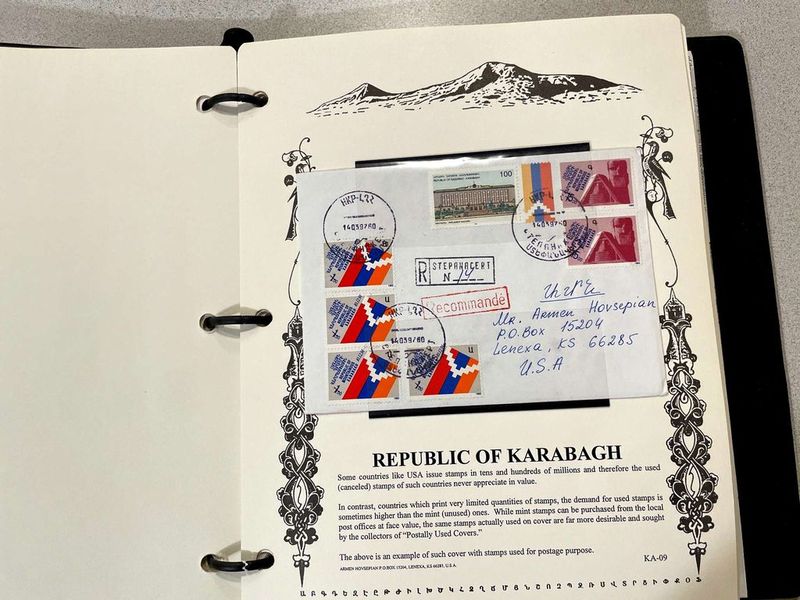 100
REPUBLIC OF KARABAGH
ՀԿՐ-ԼՂՀ
14039760
14039760
R STEPANACERT
N 14
Recommandé
14039760
ՍՏԵՓԱՆԱ
Ավիա
Mr. Armen Hovsepian
P.O.Box 15204
Lenexa, KS 66285
U.S.A
REPUBLIC OF KARABAGH
Some countries like USA issue stamps in tens and hundreds of millions and therefore the used
(canceled) stamps of such countries never appreciate in value.
In contrast, countries which print very limited quantities of stamps, the demand for used stamps is
sometimes higher than the mint (unused) ones. While mint stamps can be purchased from the local
post offices at face value, the same stamps actually used on cover are far more desirable and sought
by the collectors of “Postally Used Covers.”
The above is an example of such cover with stamps used for postage purpose.
KA-09
ARMEN HOVSEPIAN P.O.BOX 15204, LENEXA, KS 66285, U.S.A.
Ա Բ Գ Դ Ե Զ Է Ը Թ Ժ Ի Լ Խ Ծ Կ Հ Ձ Ղ Ճ Մ Յ Ն Շ Ո Չ Պ Ջ Ռ Ս Վ Տ Ր Ց Ւ Փ Ք Օ Ֆ